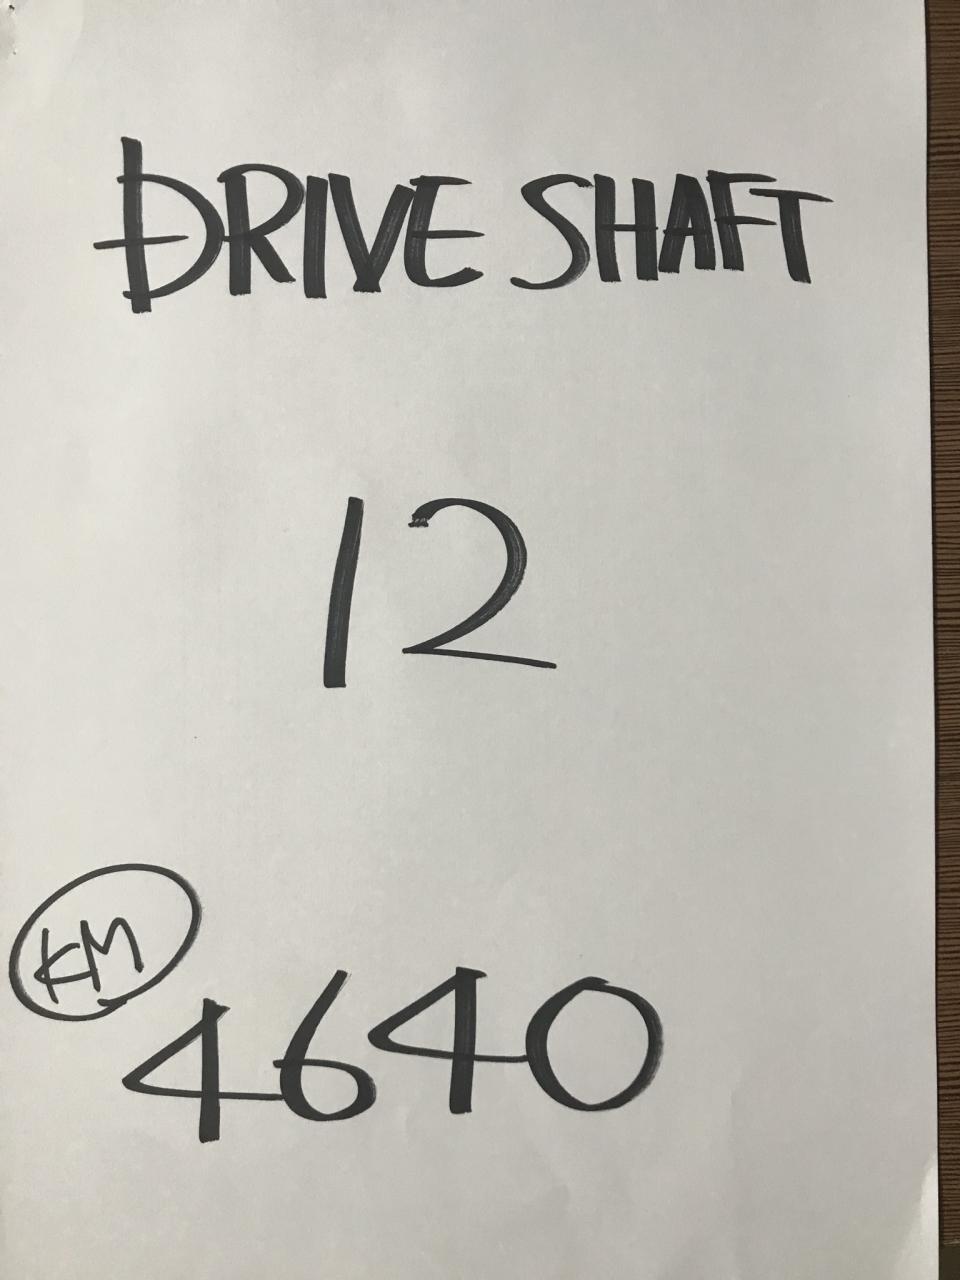 DRIVE SHAFT
12
KM
4640